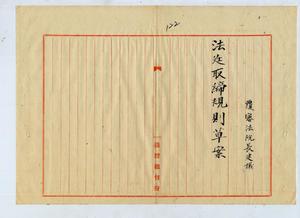 122
覆審法院長建議
法廷取締規則草案